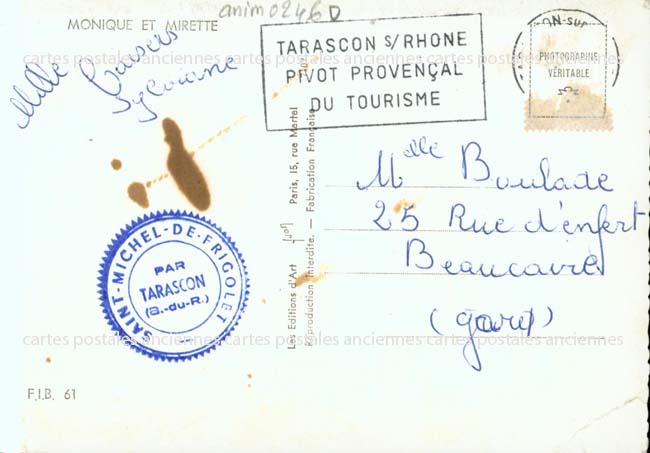 anim0246D
MONIQUE ET MIRETTE
Mille baisers
Sylviane
TARASCON S/RHONE
PIVOT PROVENÇAL
DU TOURISME
ON-SUR
PHOTOGRAPHIE
VÉRITABLE
cartes postales anciennes cartes postales anciennes cartes postales anciennes
Melle Boulade
25 Rue d'enfert
Beaucaire
(gard)
SAINT-MICHEL-DE-FRIGOLET
PAR
TARASCON
(B.-du-R.)
Les Editions d'Art Paris, 15, rue Martel
Reproduction Interdite. — Fabrication Française
cartes postales anciennes cartes postales anciennes cartes postales anciennes
F.I.B. 61